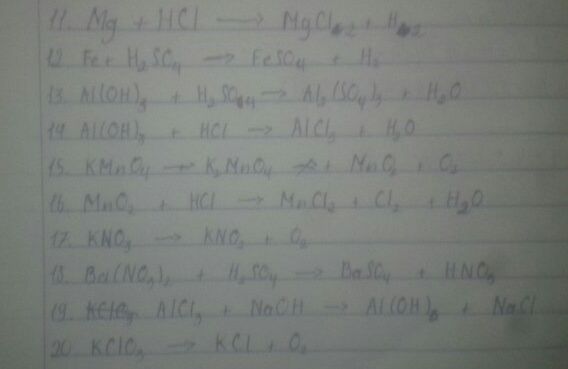 11. Mg + HCl → MgCl2 + H2
12 Fe + H2SO4 → FeSO4 + H2
13. Al(OH)3 + H2SO4 → Al2(SO4)3 + H2O
14 Al(OH)3 + HCl → AlCl3 + H2O
15. KMnO4 → K2MnO4 + MnO2 + O2
16 MnO2 + HCl → MnCl2 + Cl2 + H2O
17. KNO3 → KNO2 + O2
18. Ba(NO3)2 + H2SO4 → BaSO4 + HNO3
19. AlCl3 + NaOH → Al(OH)3 + NaCl
20 KClO3 → KCl + O2